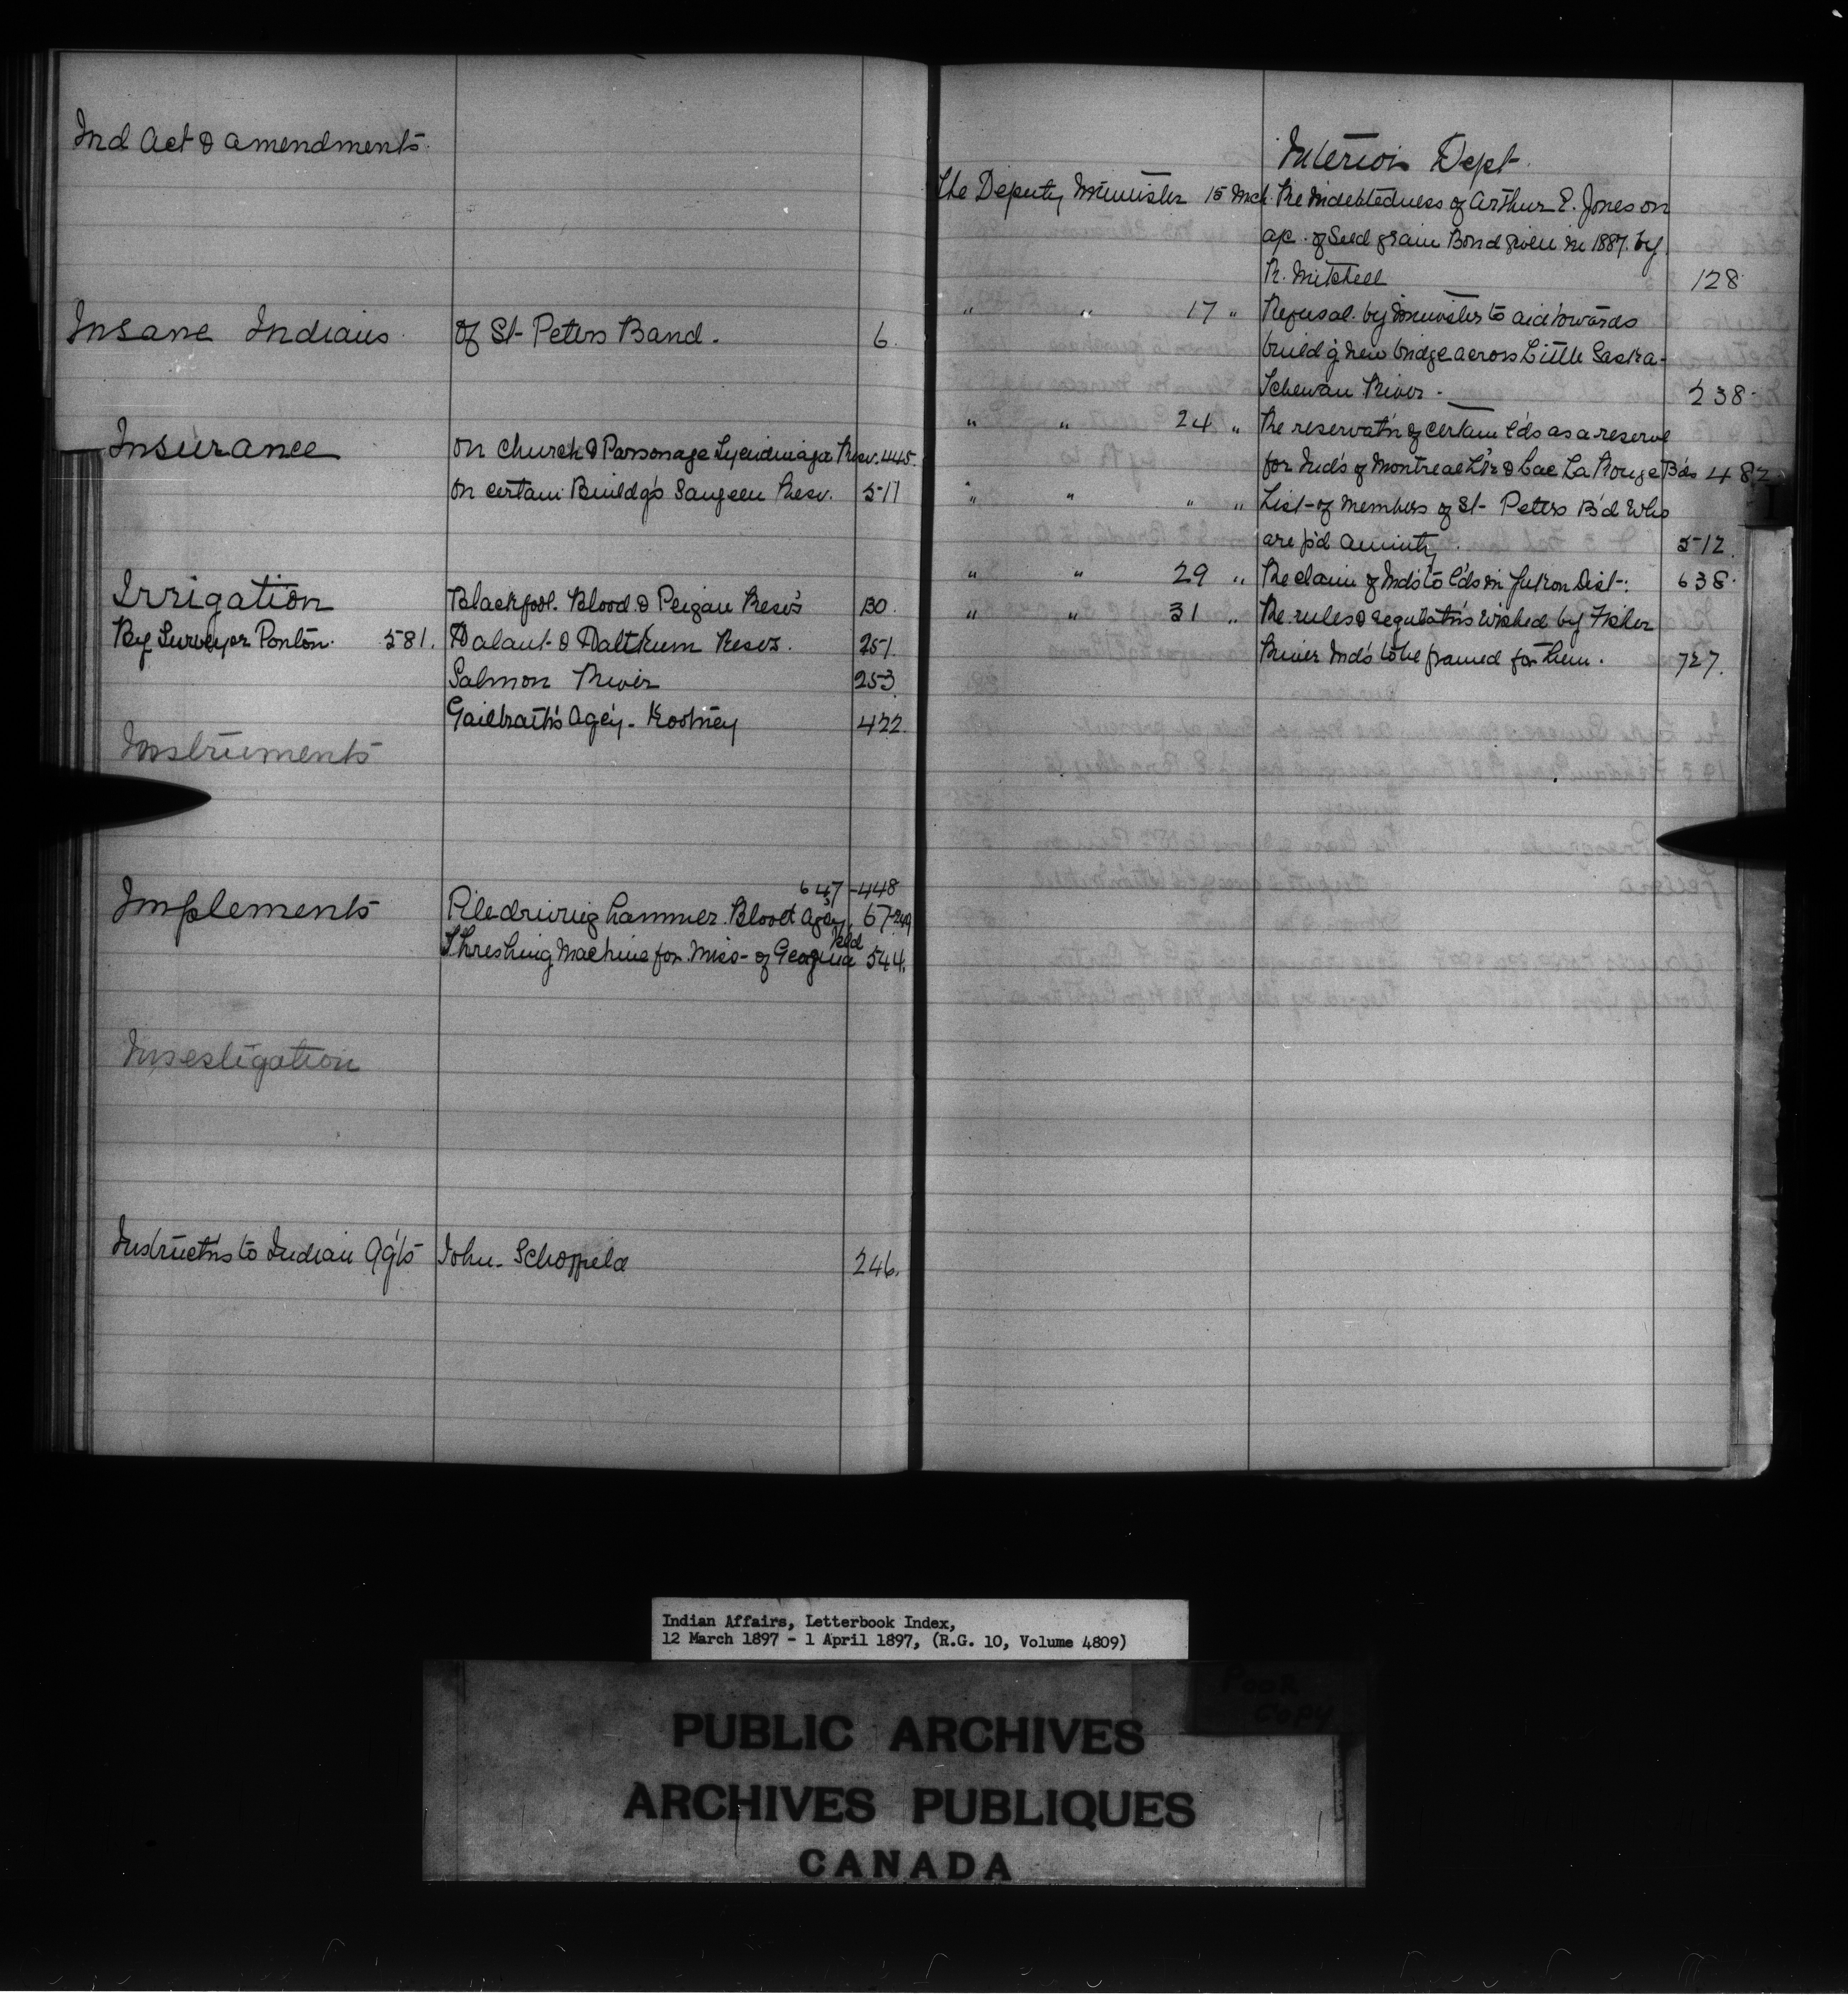 Ind Act & amendments
Insane Indians of St Peters Band. 6.
Insurance on Church & Parsonage Tyendinaga Resv. 445.
on certain Buildg's Saugeen Resv. 517
Irrigation Blackfoot. Blood. & Peigan Resv's 130.
By Surveyor Ponton. 581. & Resvs. 251.
Salmon River 253
Galbraith's Agcy - Kootney 422.
Instruments
647-448
Implements Piledriving hammer. Blood Agcy. 67
Threshing Machine for Miss- of 544.
Investigation
Instructn's to Indian Ag'ts John. Schofield 246.
Interior Dept.
The Deputy Minister 15 Mch. Re indebtedness of Arthur E. Jones on
a/c. of Seed grain Bond given in 1887. by
R. Mitchell 128
" " 17 " Refusal. by Minister to aid towards
build'g new bridge across Little Saska-
tchewan River - 238.
" " 24 " Re reservat'n of certain l'ds as a reserve
for Ind's of Montreal L'k & Lac La Ronge B'ds 482
" " " " List of members of St Peters B'd who
are p'd annuity. 512.
" " 29 " Re claim of Ind's to l'ds in Yukon Dist. 638.
" " 31 " Re. rules & regulat'ns wished by Fisher
River Ind's to be framed for them. 727.
Indian Affairs, Letterbook Index,
12 March 1897 - 1 April 1897, (R.G. 10, Volume 4809)
Poor
Copy
PUBLIC ARCHIVES
ARCHIVES PUBLIQUES
CANADA